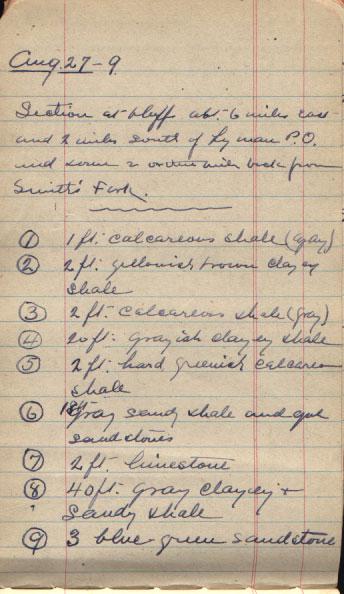 Aug. 27-9
Section at bluff abt. 6 miles east
and 2 miles south of Lyman P.O.
and some 2 or three miles back from
Smith's Fork.
① 1 ft. calcareous shale (gray)
② 2 ft. yellowish brown clayey
shale
③ 2 ft. calcareous shale (gray)
④ 20 ft. grayish clayey shale
⑤ 2 ft. hard greenish calcareou
shale
⑥ 18 ft gray sandy shale and
sandstones
⑦ 2 ft. limestone
⑧ 40 ft. gray clayey +
sandy shale
⑨ 3 blue-green sandstone